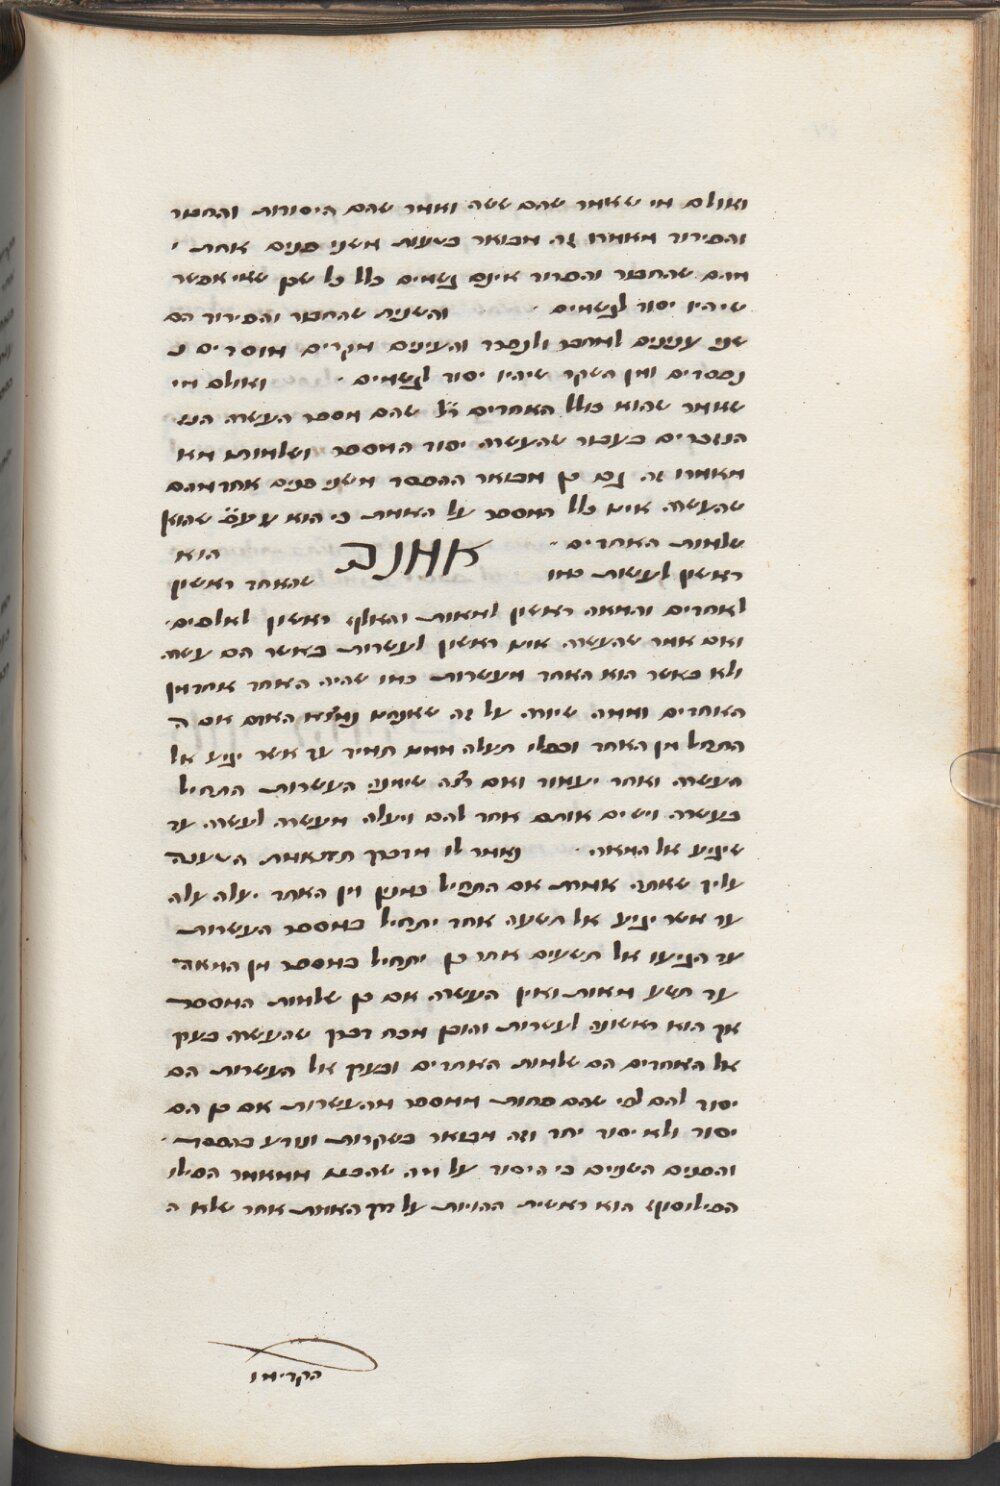 ואולם מי שאמר שהם ששה ואמר שהם היסודות והחבור
והפירוד מאמרו זה מבואר בטעות משני פנים אחת י
מהם שהחבור והפרוד אינם גשמים כלל כל שכן שאי אפשר
שיהיו יסוד לגשמים והשנית שהחבור והפירוד הם
שני ענינים למחבר ולנפרד והענינים מקרים מוסדים נ
נפסדים ומן השקר שיהיו יסוד לגשמים ואולם מי
שאמר שהוא כולל האחדים ר״ל שהם מספר העשרה הנז
הנזכרים בעבור שהעשרה יסוד המספר ושלמות מא
מאמרו זה גם כן מבואר ההפסד משני פנים אחד מהם
שהעשרה אינו כלל המספר על האמת כי הוא עצמו שהוא
שלמות האחדים אמנם הוא
ראשון לעשרות כמו שהאחד ראשון
לאחדים והמאה ראשון למאות והאלף ראשון לאלפים
ואם אמר שהעשרה אינו ראשון לעשרות כאשר הם עשרה
ולא כאשר הוא האחד מעשרות כמו שהיה האחד אחד מן
האחדים וממה שיורה על זה שאנחנו נמצא האדם אם ה
התחיל מן האחד וכפלו תעלה ממנו תמיד עד אשר יגיע אל
העשרה ואחר יעמוד ואם רצה שימנה העשרות התחיל
בעשרה וישים אותם אחד להם ויעלה מעשרה לעשרה עד
שיגיע אל המאה ונאמר לו מדבריך תתאמת הטענה
עליך שאתה אמרת אם התחיל במנין מן האחד יעלה עלה
עד אשר יגיע אל תשעה אחר יתחיל במספר העשרות
עד הגיעו אל תשעים אחר כן יתחיל במספר מן המאה
עד תשע מאות ואין העשרה אם כן שלמות המספר
אך הוא ראשונה לעשרות והובן מכח דבריך שהעשרה בערך
אל האחדים הם שלמות האחדים ובערך אל העשרות הם
יסוד להם לפי שהם פחות ממספר מהעשרות אם כן הם
יסוד ולא יסוד יחד וזה מבואר בשקרות ונודע בהפסד
והפנים השניים כי היסוד על מה שהבנו ממאמר הפילו
הפילוסוף הוא ראשית ההויות על דרך האמת אחר שלא ה
הקדימו